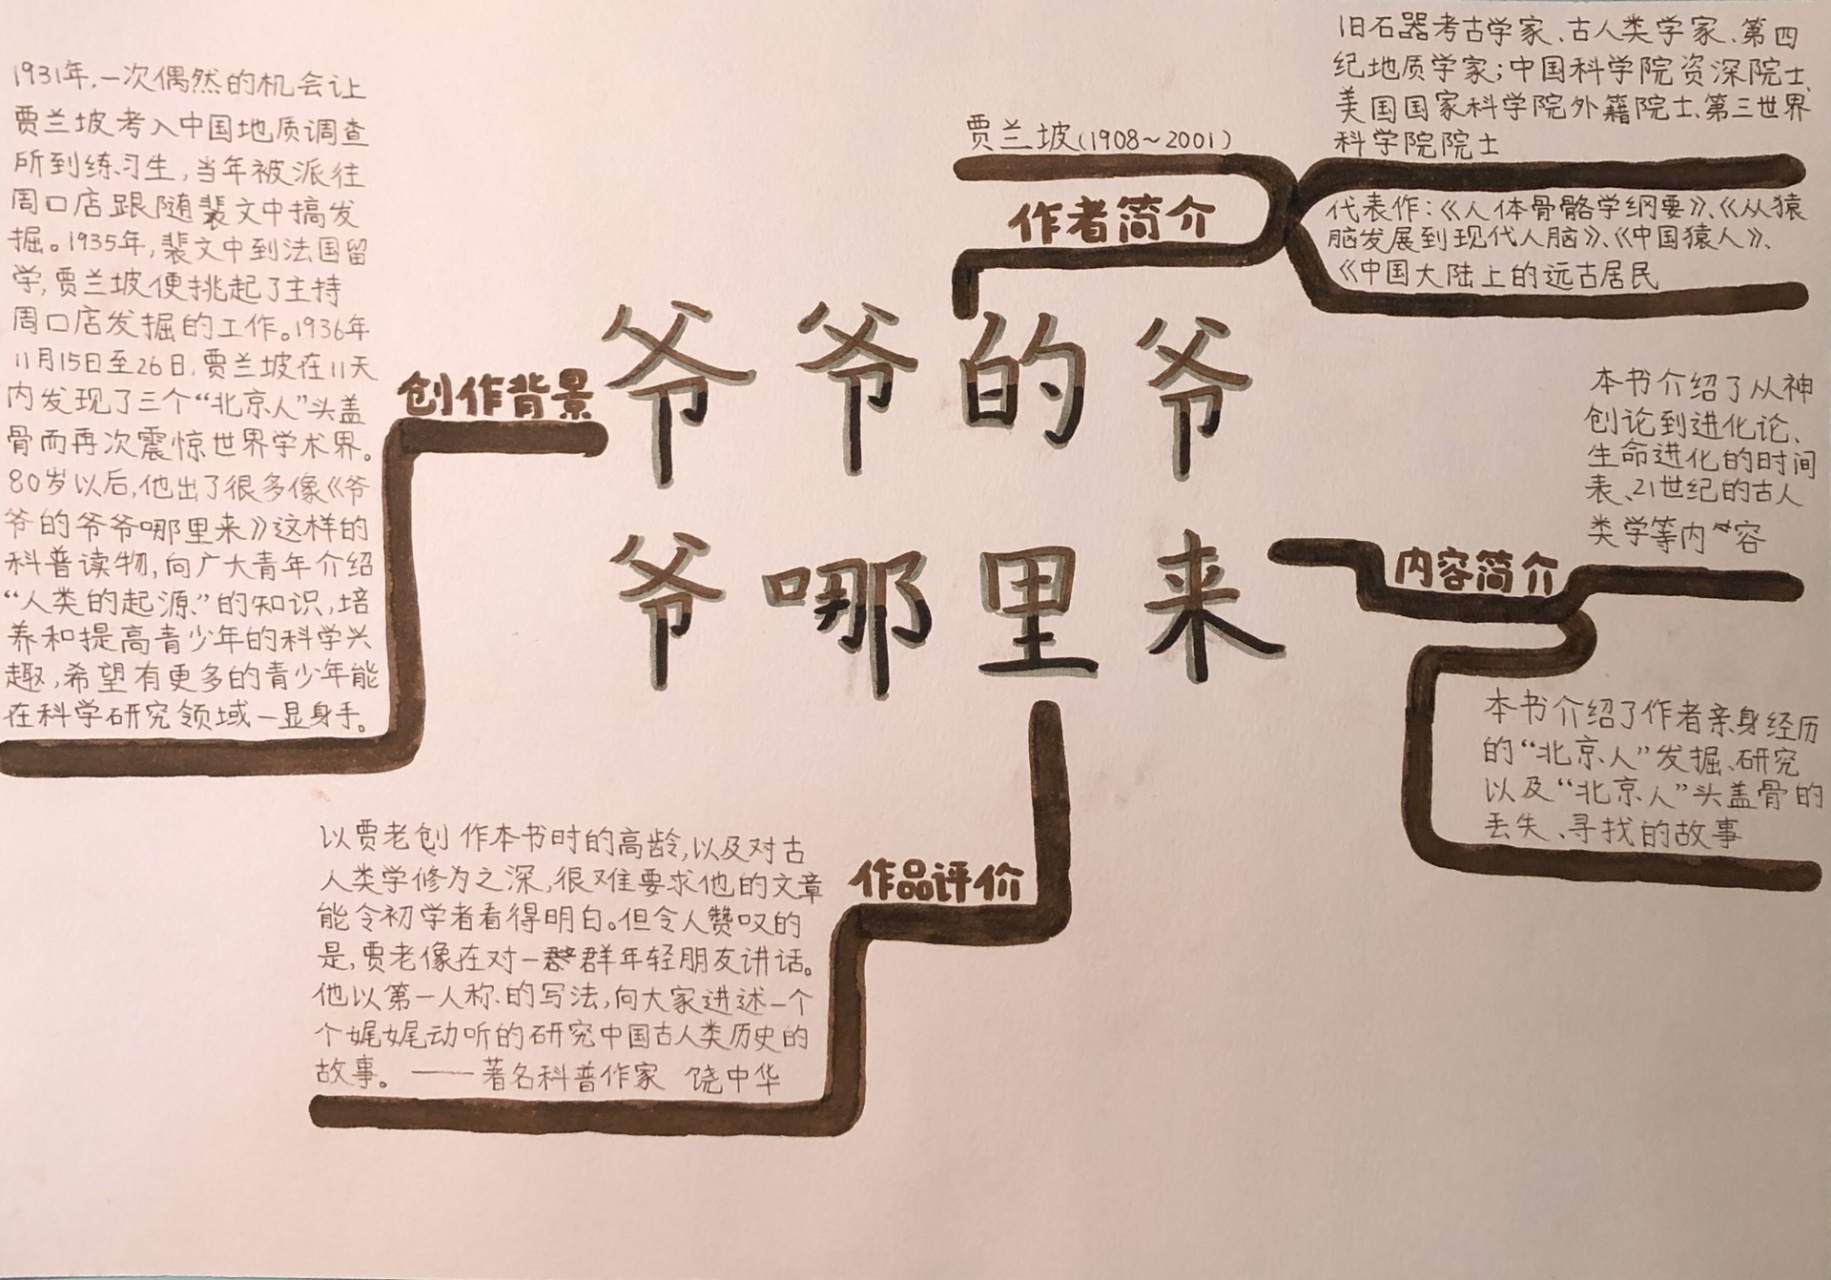 爷爷的爷
爷哪里来
作者简介
贾兰坡(1908～2001)
旧石器考古学家、古人类学家、第四
纪地质学家；中国科学院资深院士、
美国国家科学院外籍院士、第三世界
科学院院士
代表作：《人体骨骼学纲要》、《从猿
脑发展到现代人脑》、《中国猿人》、
《中国大陆上的远古居民
内容简介
本书介绍了从神
创论到进化论、
生命进化的时间
表、21世纪的古人
类学等内容
本书介绍了作者亲身经历
的“北京人”发掘、研究
以及“北京人”头盖骨的
丢失、寻找的故事
作品评价
以贾老创作本书时的高龄，以及对古
人类学修为之深，很难要求他的文章
能令初学者看得明白。但令人赞叹的
是，贾老像在对一群年轻朋友讲话。
他以第一人称的写法，向大家进述一个
个娓娓动听的研究中国古人类历史的
故事。——著名科普作家 饶中华
创作背景
1931年，一次偶然的机会让
贾兰坡考入中国地质调查
所到练习生，当年被派往
周口店跟随裴文中搞发
掘。1935年，裴文中到法国留
学，贾兰坡便挑起了主持
周口店发掘的工作。1936年
11月15日至26日，贾兰坡在11天
内发现了三个“北京人”头盖
骨而再次震惊世界学术界。
80岁以后，他出了很多像《爷
爷的爷爷哪里来》这样的
科普读物，向广大青年介绍
“人类的起源”的知识，培
养和提高青少年的科学兴
趣，希望有更多的青少年能
在科学研究领域一显身手。